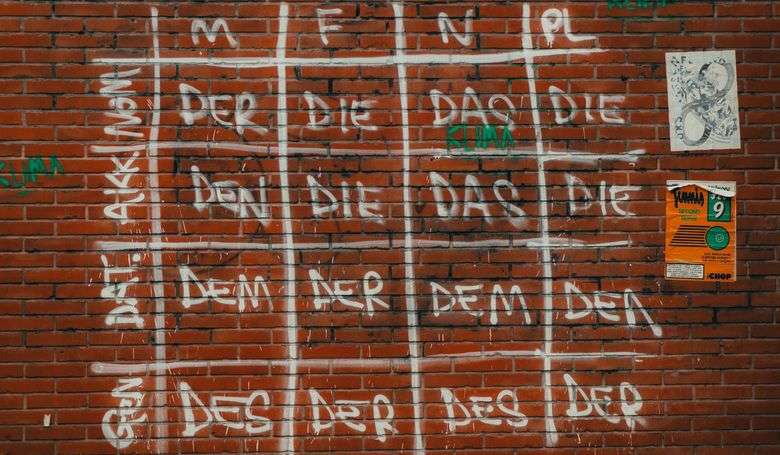 KLIMA
M F N PL
NOM DER DIE DAS DIE
KLIMA
AKK DEN DIE DAS DIE
DAT. DEM DER DEM DEN
GEN DES DER DES DER
KLIMA
9
CHOP